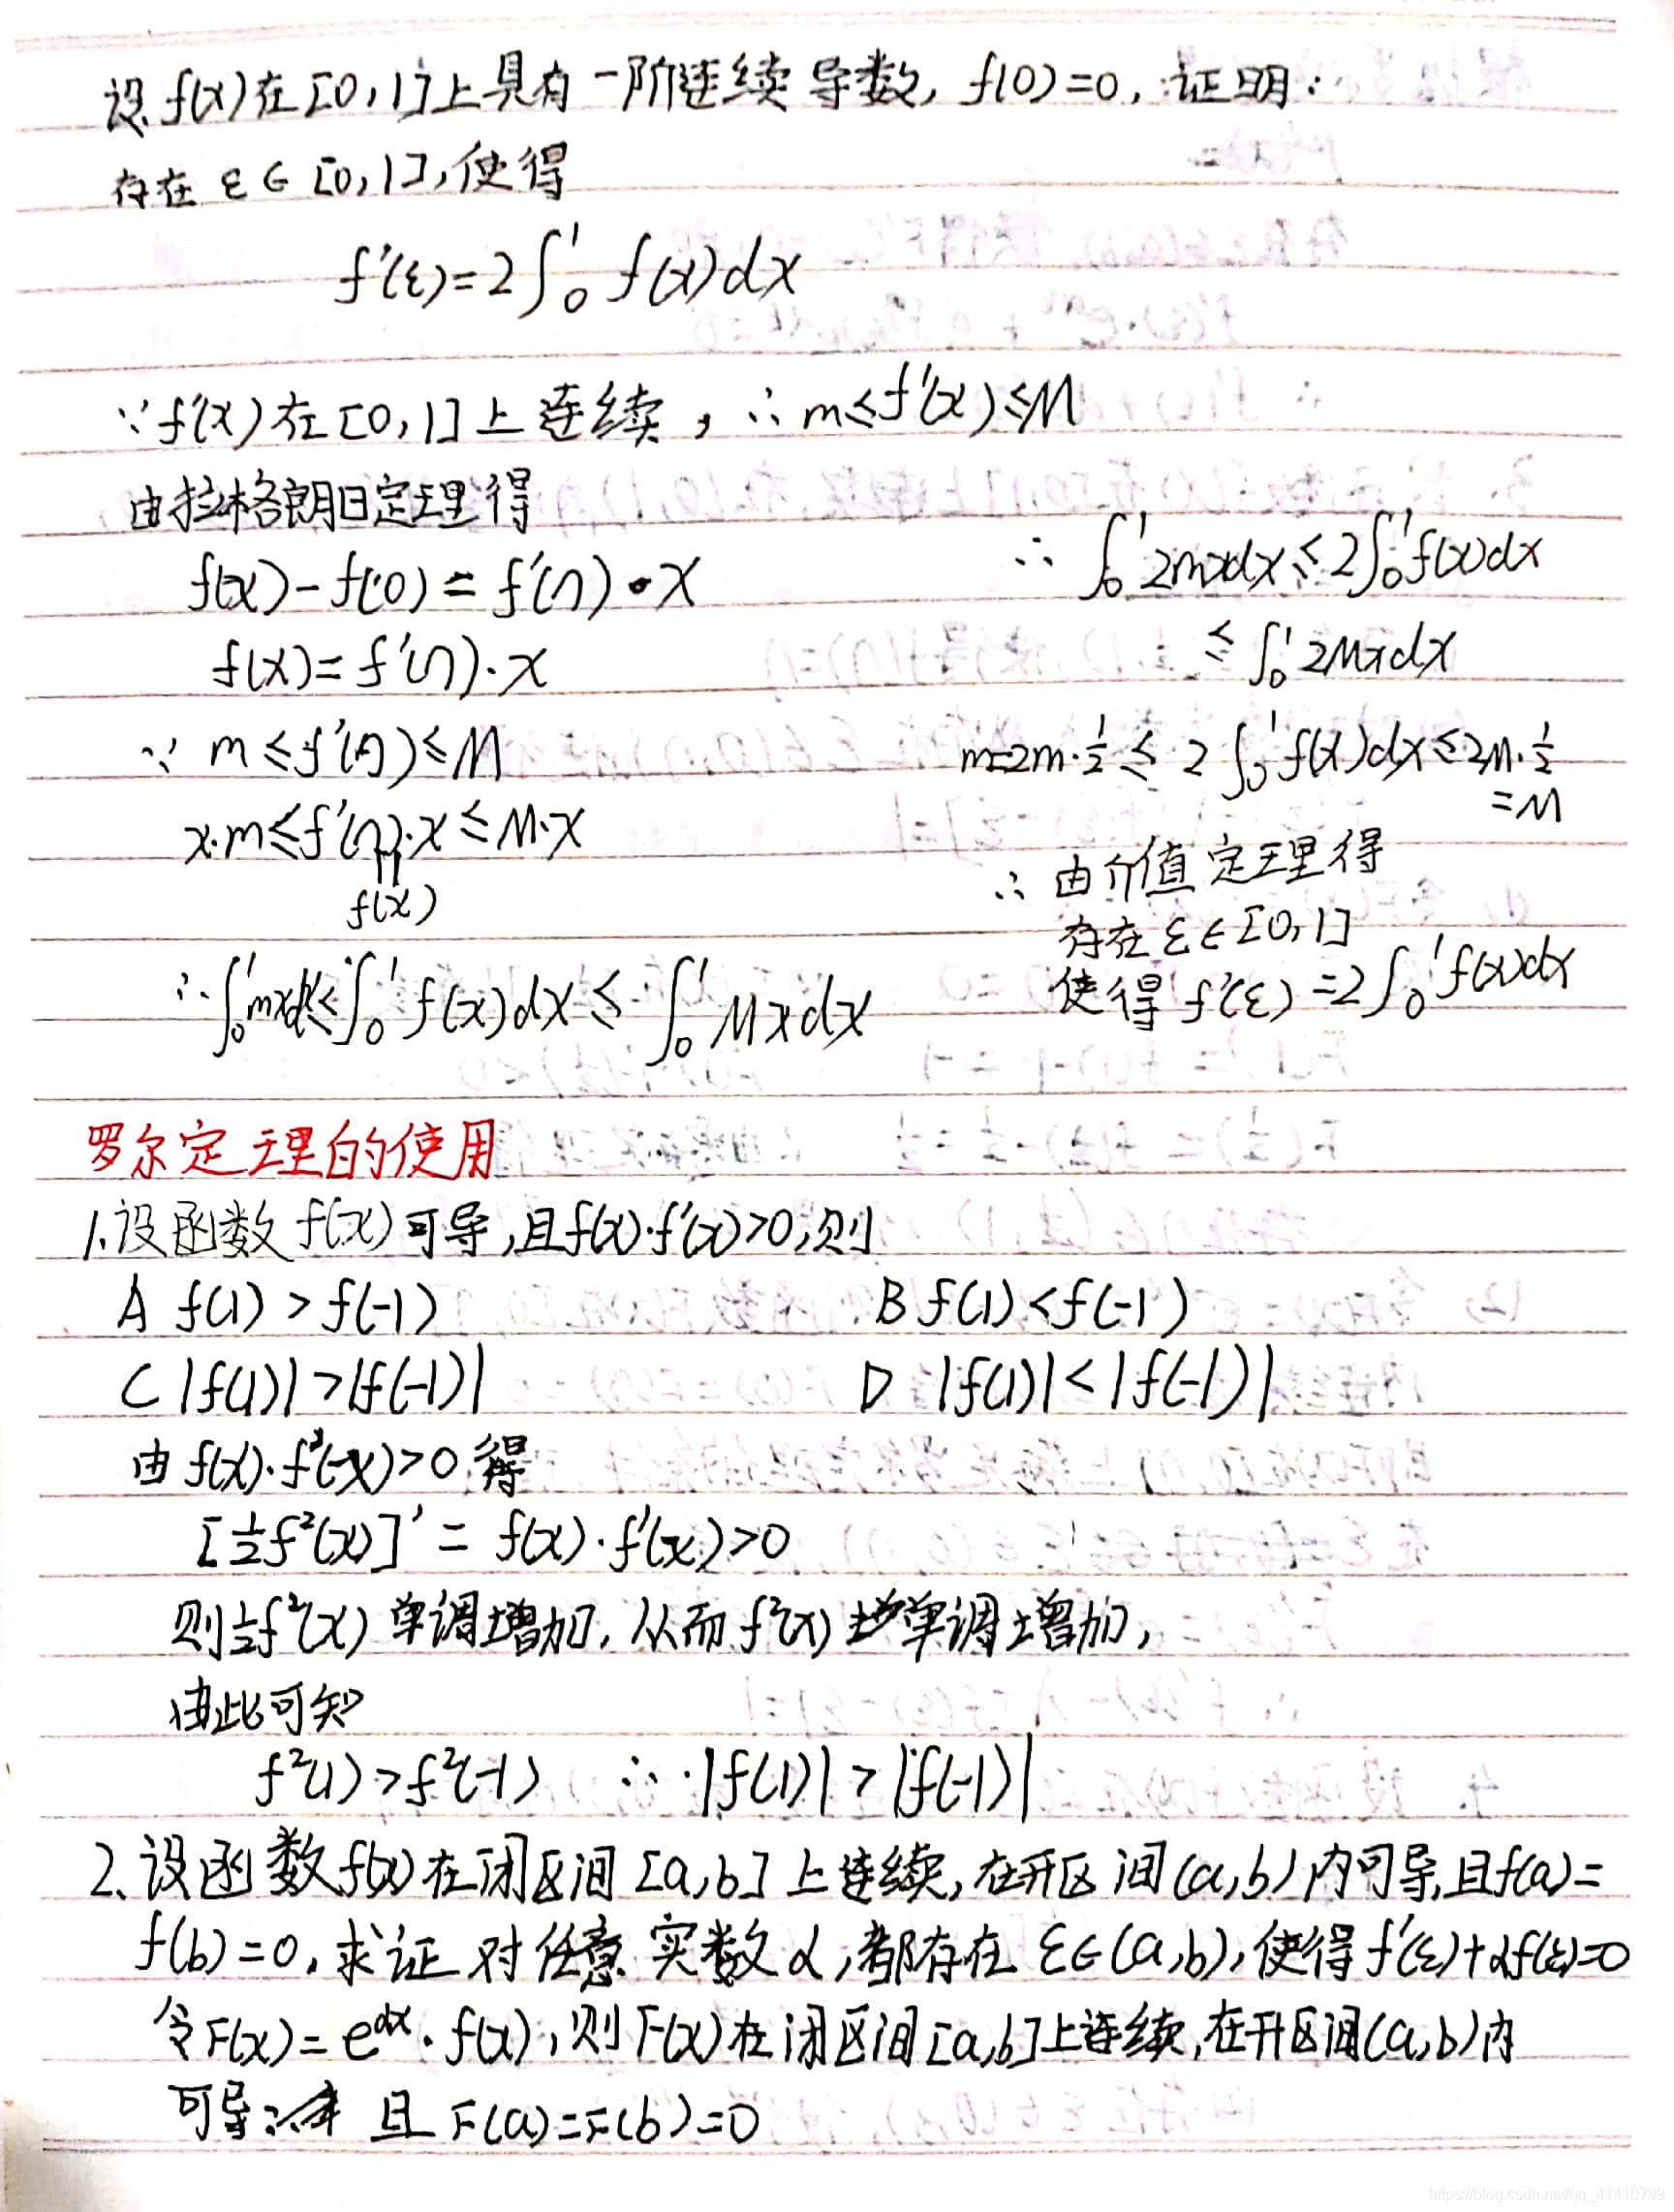 设f(x)在[0,1]上具有一阶连续导数, f(0)=0, 证明:
存在 ε∈[0,1],使得
f'(ε)=2∫₀¹ f(x)dx
∵f'(x)在[0,1]上连续, ∴m≤f'(x)≤M
由拉格朗日定理得
f(x)-f(0)=f'(η)·x
f(x)=f'(η)·x
∵ m≤f'(η)≤M
x·m≤f'(η)·x≤M·x
f(x)
∴∫₀¹mxdx≤∫₀¹f(x)dx≤∫₀¹Mxdx
∴ ∫₀¹2mxdx≤2∫₀¹f(x)dx
≤∫₀¹2Mxdx
m=2m·½≤2∫₀¹f(x)dx≤2M·½
=M
∴ 由介值定理得
存在ε∈[0,1]
使得f'(ε)=2∫₀¹f(x)dx
罗尔定理的使用
1.设函数f(x)可导,且f(x)·f'(x)>0,则
A f(1)>f(-1) B f(1)<f(-1)
C |f(1)|>|f(-1)| D |f(1)|<|f(-1)|
由f(x)·f'(x)>0得
[½f²(x)]'=f(x)·f'(x)>0
则½f²(x)单调增加,从而f²(x)也单调增加,
由此可知
f²(1)>f²(-1) ∴|f(1)|>|f(-1)|
2、设函数f(x)在闭区间[a,b]上连续,在开区间(a,b)内可导,且f(a)=
f(b)=0,求证对任意实数α,都存在ε∈(a,b),使得f'(ε)+αf(ε)=0
令F(x)=e^αx·f(x),则F(x)在闭区间[a,b]上连续,在开区间(a,b)内
可导 且F(a)=F(b)=0
https://blog.csdn.net/qq_41410799